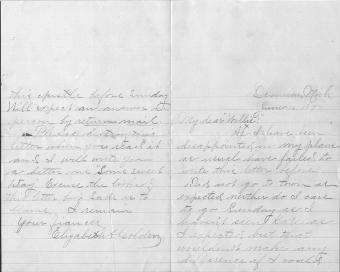 Mich
My dear Willie:
As I have been
disappointed in my plans
as usual have failed to
write this letter before
Did not go to town as
expected, neither do I care
to go Sunday as I
haven't been
I expected but that
wouldn't make any
difference if I could
this epistle before Sunday
Will expect an answer
person by return mail
Please destroy this
letter when you read it
and I will write you
a better one some sweet
day Excuse the looks of
the letter
I remain
Your fiancee
Elizabeth Golden